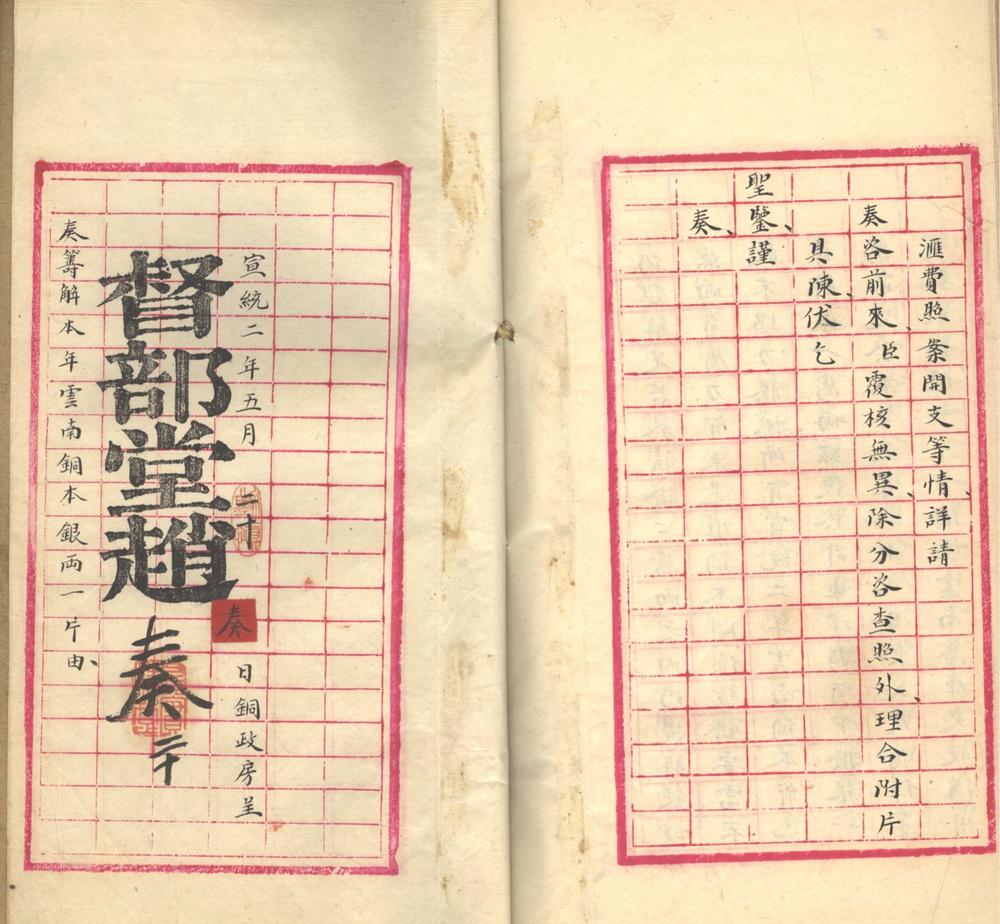 滙費照案開支等情、詳請
奏咨前來、臣覆核無異、除分咨查照外、理合附片
具陳、伏乞
聖鑒、謹
奏、
宣統二年五月二十日銅政房呈
奏
督部堂趙
奏
二十
奏籌解本年雲南銅本銀兩一片由、